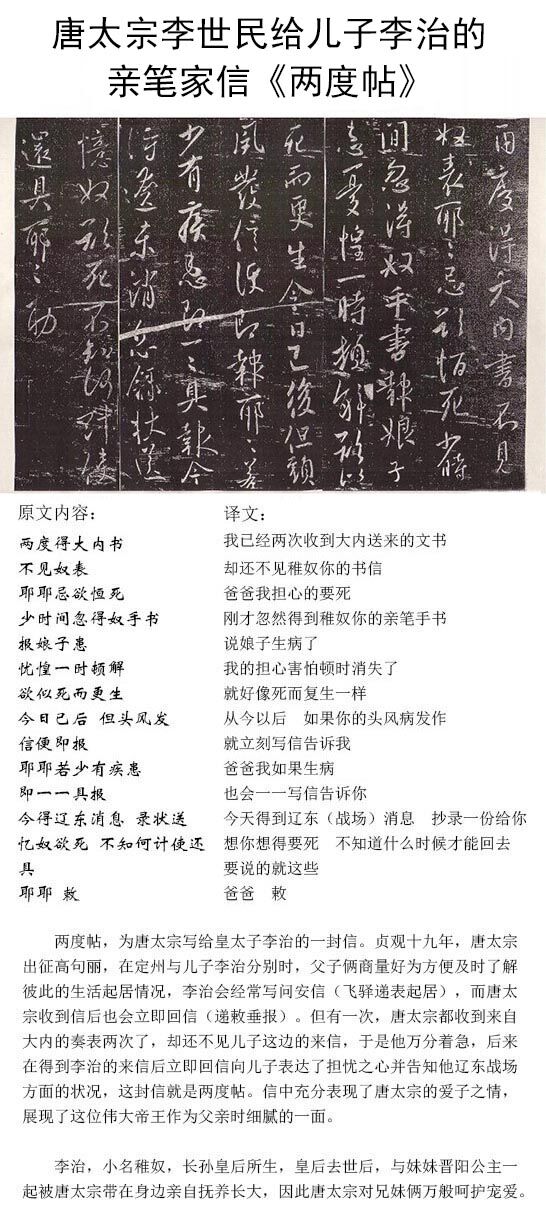 唐太宗李世民给儿子李治的
亲笔家信《两度帖》
兩度得大内書不見
奴表耶々忌欲恒死少時
間忽得奴手書報娘子
患憂惶一時頓解欲似
死而更生今日已後但頭
風發信便即報耶々若
少有疾患即一々具報今
得遼東消息錄狀送
憶奴欲死不知何計使
還具耶々勑
原文内容：
两度得大内书
不见奴表
耶耶忌欲恒死
少时间忽得奴手书
报娘子患
忧惶一时顿解
欲似死而更生
今日已后 但头风发
信便即报
耶耶若少有疾患
即一一具报
今得辽东消息 录状送
忆奴欲死 不知何计使还
具
耶耶 敕
译文：
我已经两次收到大内送来的文书
却还不见稚奴你的书信
爸爸我担心的要死
刚才忽然得到稚奴你的亲笔手书
说娘子生病了
我的担心害怕顿时消失了
就好像死而复生一样
从今以后 如果你的头风病发作
就立刻写信告诉我
爸爸我如果生病
也会一一写信告诉你
今天得到辽东（战场）消息 抄录一份给你
想你想得要死 不知道什么时候才能回去
要说的就这些
爸爸 敕
两度帖，为唐太宗写给皇太子李治的一封信。贞观十九年，唐太宗
出征高句丽，在定州与儿子李治分别时，父子俩商量好为方便及时了解
彼此的生活起居情况，李治会经常写问安信（飞驿递表起居），而唐太
宗收到信后也会立即回信（递敕垂报）。但有一次，唐太宗都收到来自
大内的奏表两次了，却还不见儿子这边的来信，于是他万分着急，后来
在得到李治的来信后立即回信向儿子表达了担忧之心并告知他辽东战场
方面的状况，这封信就是两度帖。信中充分表现了唐太宗的爱子之情，
展现了这位伟大帝王作为父亲时细腻的一面。
李治，小名稚奴，长孙皇后所生，皇后去世后，与妹妹晋阳公主一
起被唐太宗带在身边亲自抚养长大，因此唐太宗对兄妹俩万般呵护宠爱。